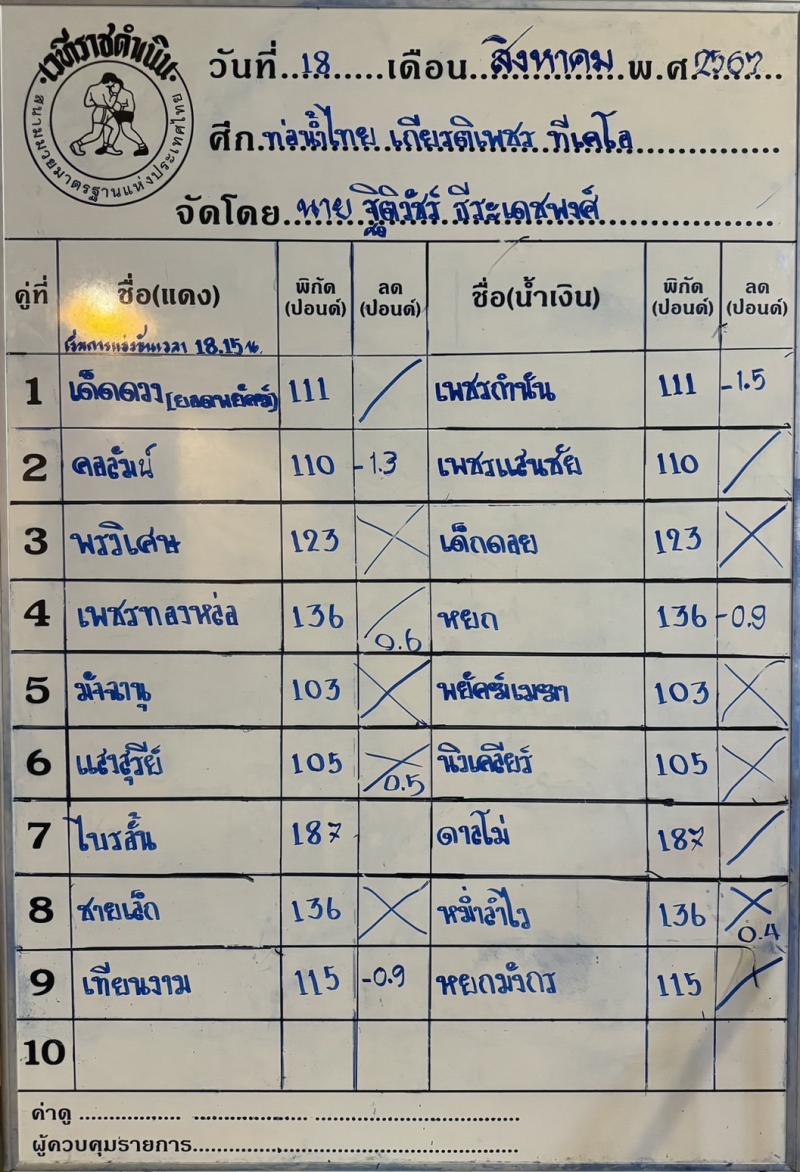 เวทีราชดำเนิน
สนามมวยมาตรฐานแห่งประเทศไทย
วันที่..18.....เดือน..สิงหาคม..พ.ศ.2567
ศึก.ท่อน้ำไทย เกียรติเพชร ทีเคโอ
จัดโดย..นาย ฐิติวัชร์ ธีระเดชพงศ์
คู่ที่ ชื่อ(แดง) พิกัด (ปอนด์) ลด (ปอนด์) ชื่อ(น้ำเงิน) พิกัด (ปอนด์) ลด (ปอนด์)
เริ่มการแข่งขันเวลา 18.15 น.
1 เด็ดดวง 111 เพชรกำนัน 111 -1.5
2 คลลัมน์ 110 -1.3 เพชรแสนชัย 110
3 พรวิเศษ 123 เด็กดอย 123
4 เพชรทองหล่อ 136 0.6 หยก 136 -0.9
5 มัจฉานุ 103 พยัคฆ์เมฆา 103
6 แสงสุรีย์ 105 0.5 นิวเคลียร์ 105
7 ไบรอั้น 187 ดาลโม่ 187
8 ชายเล็ก 136 หม่ำลำไว 136 0.4
9 เทียนงาม 115 -0.9 หยกมังกร 115
10
ค่าดู
ผู้ควบคุมรายการ